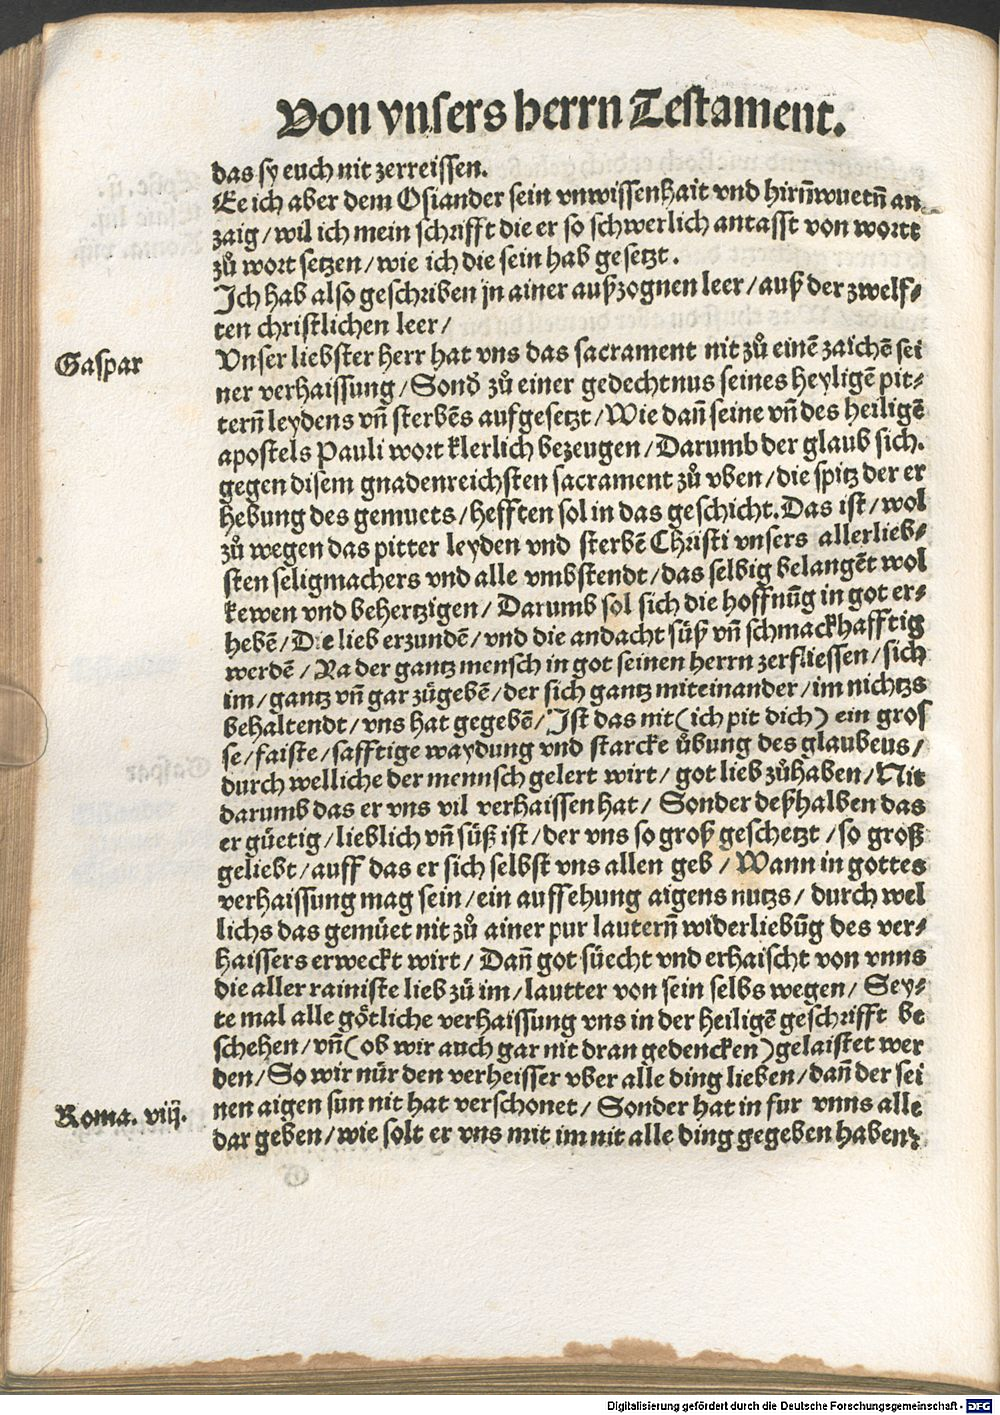 Von vnsers herrn Testament.
das sy euch nit zerreissen.
Ee ich aber dem Osiander sein vnwissenhait vnd hirñwuetñ an
zaig / wil ich mein schrifft die er so schwerlich antasst von wortt
zů wort setzen / wie ich die sein hab gesetzt.
Ich hab also geschriben jn ainer außzognen leer / auß der zwelf⸗
ten christlichen leer /
Gaspar
Vnser liebster herr hat vns das sacrament nit zů einē zaichē sei
ner verhaissung / Sond̕ zů einer gedechtnus seines heyligē pit⸗
terñ leydens vñ sterbēs aufgesetzt / Wie dañ seine vñ des heiligē
apostels Pauli wort klerlich bezeugen / Darumb der glaub sich.
gegen disem gnadenreichsten sacrament zů vben / die spitz der er
hebung des gemuets / hefften sol in das geschicht. Das ist / wol
zů wegen das pitter leyden vnd sterbē Christi vnsers allerlieb⸗
sten seligmachers vnd alle vmbstendt / das selbig belangēt wol
kewen vnd behertzigen / Darumb sol sich die hoffnūg in got er⸗
hebē / Die lieb erzundē / vnd die andacht süß vñ schmackhafftig
werdē / Ja der gantz mensch in got seinen herrn zerfliessen / sich
im / gantz vñ gar zügebē / der sich gantz miteinander / im nichtzs
behaltendt / vns hat gegebē / Ist das nit (ich pit dich) ein gros
se / faiste / safftige waydung vnd starcke ůbung des glaubeus /
durch welliche der mennsch gelert wirt / got lieb zůhaben / Nit
darumb das er vns vil verhaissen hat / Sonder deßhalben das
er güetig / lieblich vñ süß ist / der vns so groß geschetzt / so groß
geliebt / auff das er sich selbst vns allen geb / Wann in gottes
verhaissung mag sein / ein auffsehung aigens nutzs / durch wel
lichs das gemüet nit zů ainer pur lauterñ widerliebūg des ver⸗
haissers erweckt wirt / Dañ got süecht vnd erhaischt von vnns
die aller rainiste lieb zü im / lautter von sein selbs wegen / Sey⸗
te mal alle götliche verhaissung vns in der heiligē geschrifft be
schehen / vñ (ob wir auch gar nit dran gedencken) gelaistet wer
den / So wir nür den verheisser vber alle ding lieben / dañ der sei
Roma. viij.
nen aigen sun nit hat verschonet / Sonder hat in fur vnns alle
dar geben / wie solt er vns mit im nit alle ding gegeben haben?
Digitalisierung gefördert durch die Deutsche Forschungsgemeinschaft - DFG